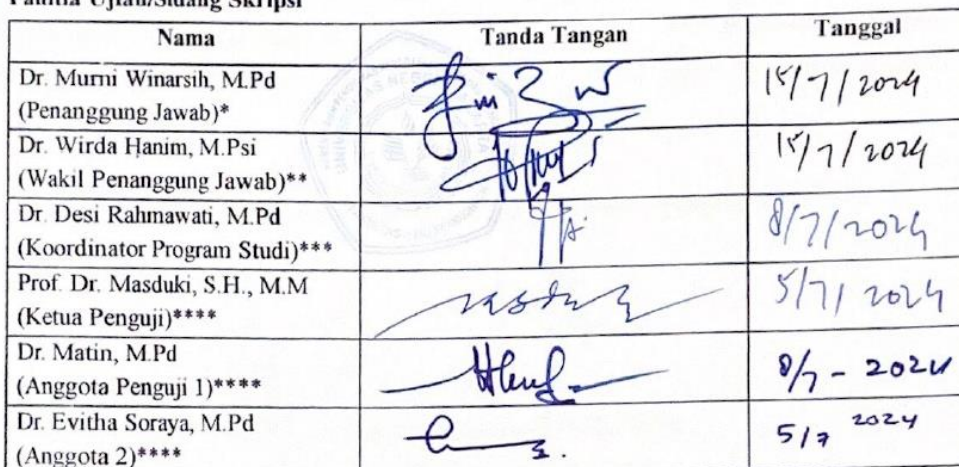 Panitia Ujian/Sidang Skripsi
Nama Tanda Tangan Tanggal
Dr. Murni Winarsih, M.Pd
(Penanggung Jawab)* 15/7/2024
Dr. Wirda Hanim, M.Psi
(Wakil Penanggung Jawab)** 15/7/2024
Dr. Desi Rahmawati, M.Pd
(Koordinator Program Studi)*** 8/7/2024
Prof. Dr. Masduki, S.H., M.M
(Ketua Penguji)**** 5/7/2024
Dr. Matin, M.Pd
(Anggota Penguji 1)**** 8/7 - 2024
Dr. Evitha Soraya, M.Pd
(Anggota 2)**** 5/7 2024